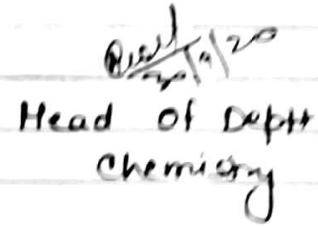 30/9/20
Head of Deptt
Chemistry